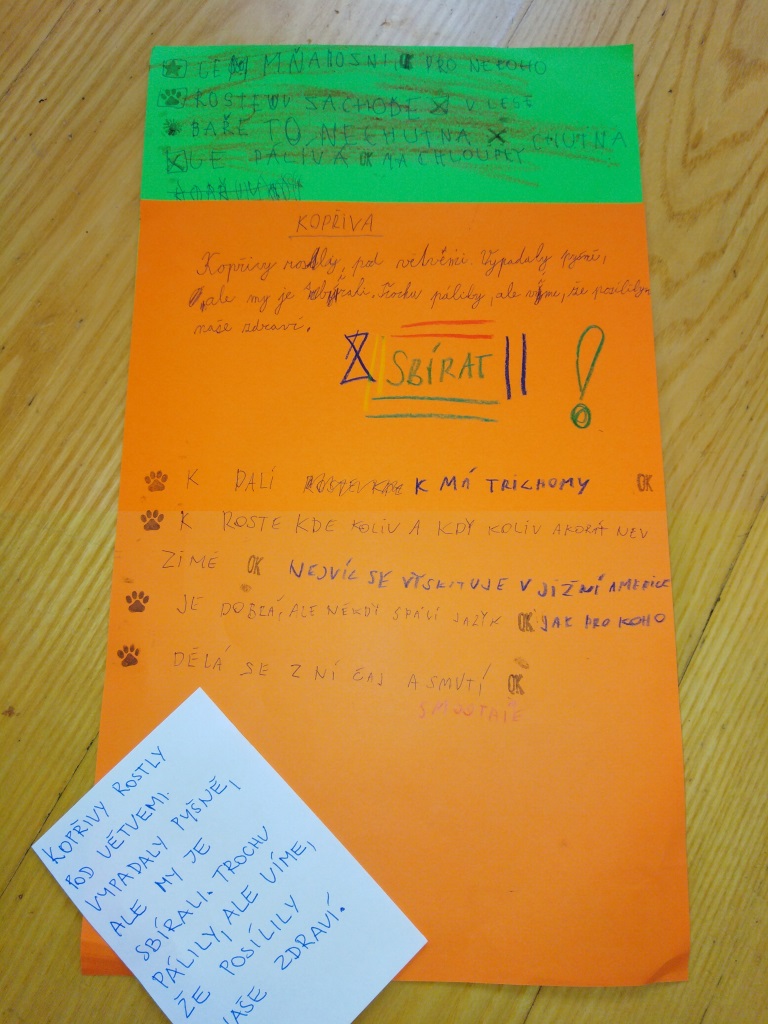 PRO NĚKOHO
ROSTE V LESE
TO NECHUTNÁ X CHUTNÁ
JE PÁLIVÁ OK MÁ CHLOUPKY
KOPŘIVA
Kopřivy rostly, pod větvěmi. Vypadaly pyšně,
ale my je sbírali. Trochu pálily, ale víme, že posílily
naše zdraví.
SBÍRAT !
K PALÍ K MÁ TRICHOMY OK
K ROSTE KDE KOLIV A KDY KOLIV AKORÁT NE V
ZIMĚ OK NEJVÍC SE VYSKITUJE V JIŽNÍ AMERICE
JE DOBRÁ, ALE NĚKDY SPÁLÍ JAZYK OK JAK PRO KOHO
DĚLÁ SE Z NÍ ČAJ A SMUTÍ OK
KOPŘIVY ROSTLY
POD VĚTVEMI.
VYPADALY PYŠNĚ,
ALE MY JE
SBÍRALI. TROCHU
PÁLILY, ALE VÍME,
ŽE POSÍLILY
NAŠE ZDRAVÍ.